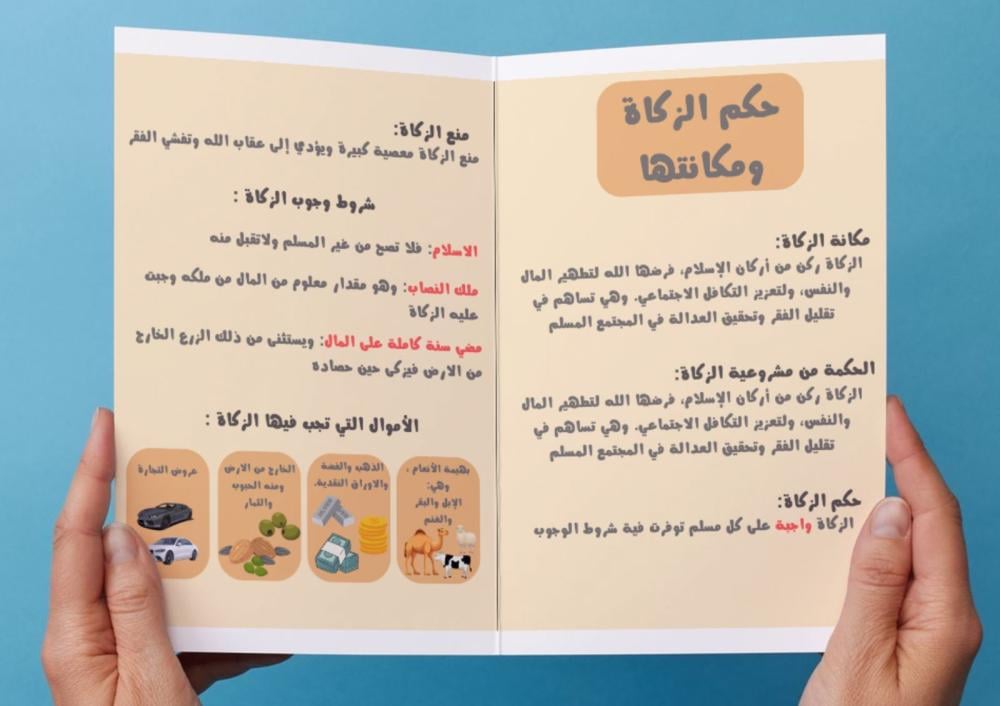 حكم الزكاة
ومكانتها
مكانة الزكاة:
الزكاة ركن من أركان الإسلام، فرضها الله لتطهير المال
والنفس، ولتعزيز التكافل الاجتماعي. وهي تساهم في
تقليل الفقر وتحقيق العدالة في المجتمع المسلم
الحكمة من مشروعية الزكاة:
الزكاة ركن من أركان الإسلام، فرضها الله لتطهير المال
والنفس، ولتعزيز التكافل الاجتماعي. وهي تساهم في
تقليل الفقر وتحقيق العدالة في المجتمع المسلم
حكم الزكاة:
الزكاة واجبة على كل مسلم توفرت فية شروط الوجوب
منع الزكاة:
منع الزكاة معصية كبيرة ويؤدي إلى عقاب الله وتفشي الفقر
شروط وجوب الزكاة :
الاسلام: فلا تصح من غير المسلم ولاتقبل منه
ملك النصاب: وهو مقدار معلوم من المال من ملكه وجبت
عليه الزكاة
مضي سنة كاملة على المال: ويستثنى من ذلك الزرع الخارج
من الارض فيزكى حين حصاده
الأموال التي تجب فيها الزكاة :
بهيمة الأنعام ،
وهي:
الإبل والبقر
والغنم
الذهب والفضة
والاوراق النقدية.
الخارج من الارض
ومنه الحبوب
والثمار
عروض التجارة